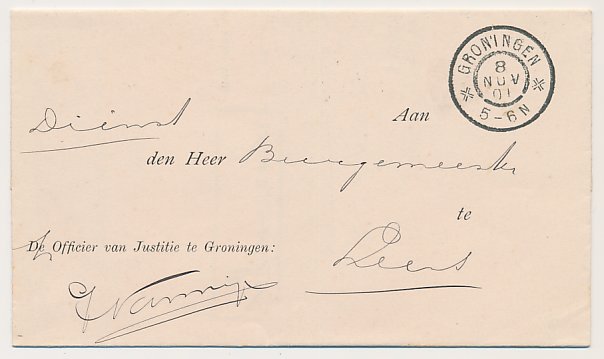 GRONINGEN
8
NOV
01
5-6N
Dienst
Aan
den Heer Burgemeester
te
Leens
De Officier van Justitie te Groningen: